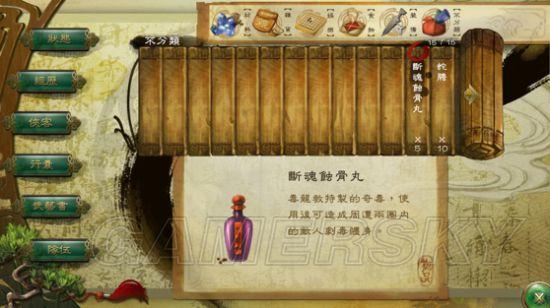 狀態
經歷
俠客
行囊
隊伍
不分類
裝備
不分類
15 / 15
斷魂蝕骨丸
×5
蛇膽
×10
斷魂蝕骨丸
毒龍教特製的奇毒，使
用後可造成周遭兩圈內
的敵人劇毒纏身。
GAMERSKY